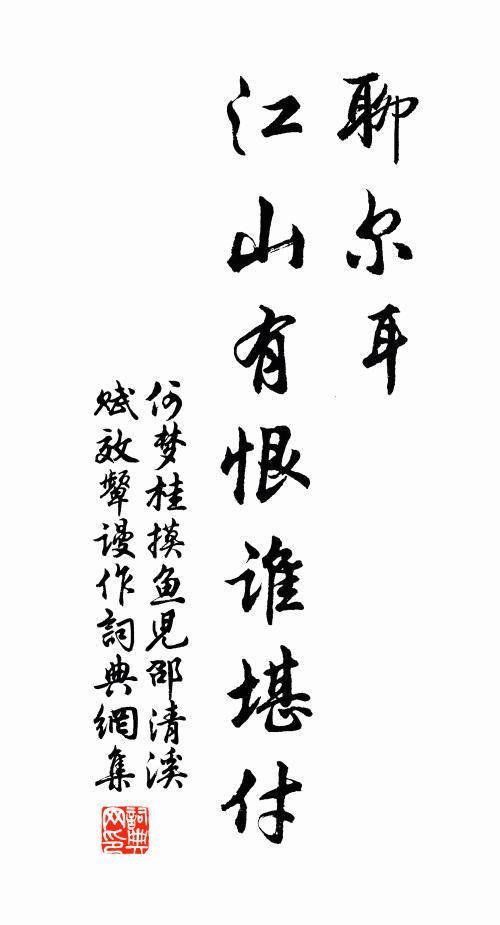 聊尔耳
江山有恨谁堪付
何梦桂摸鱼児邵清溪
赋效颦谩作詞典網集
詞典
网印